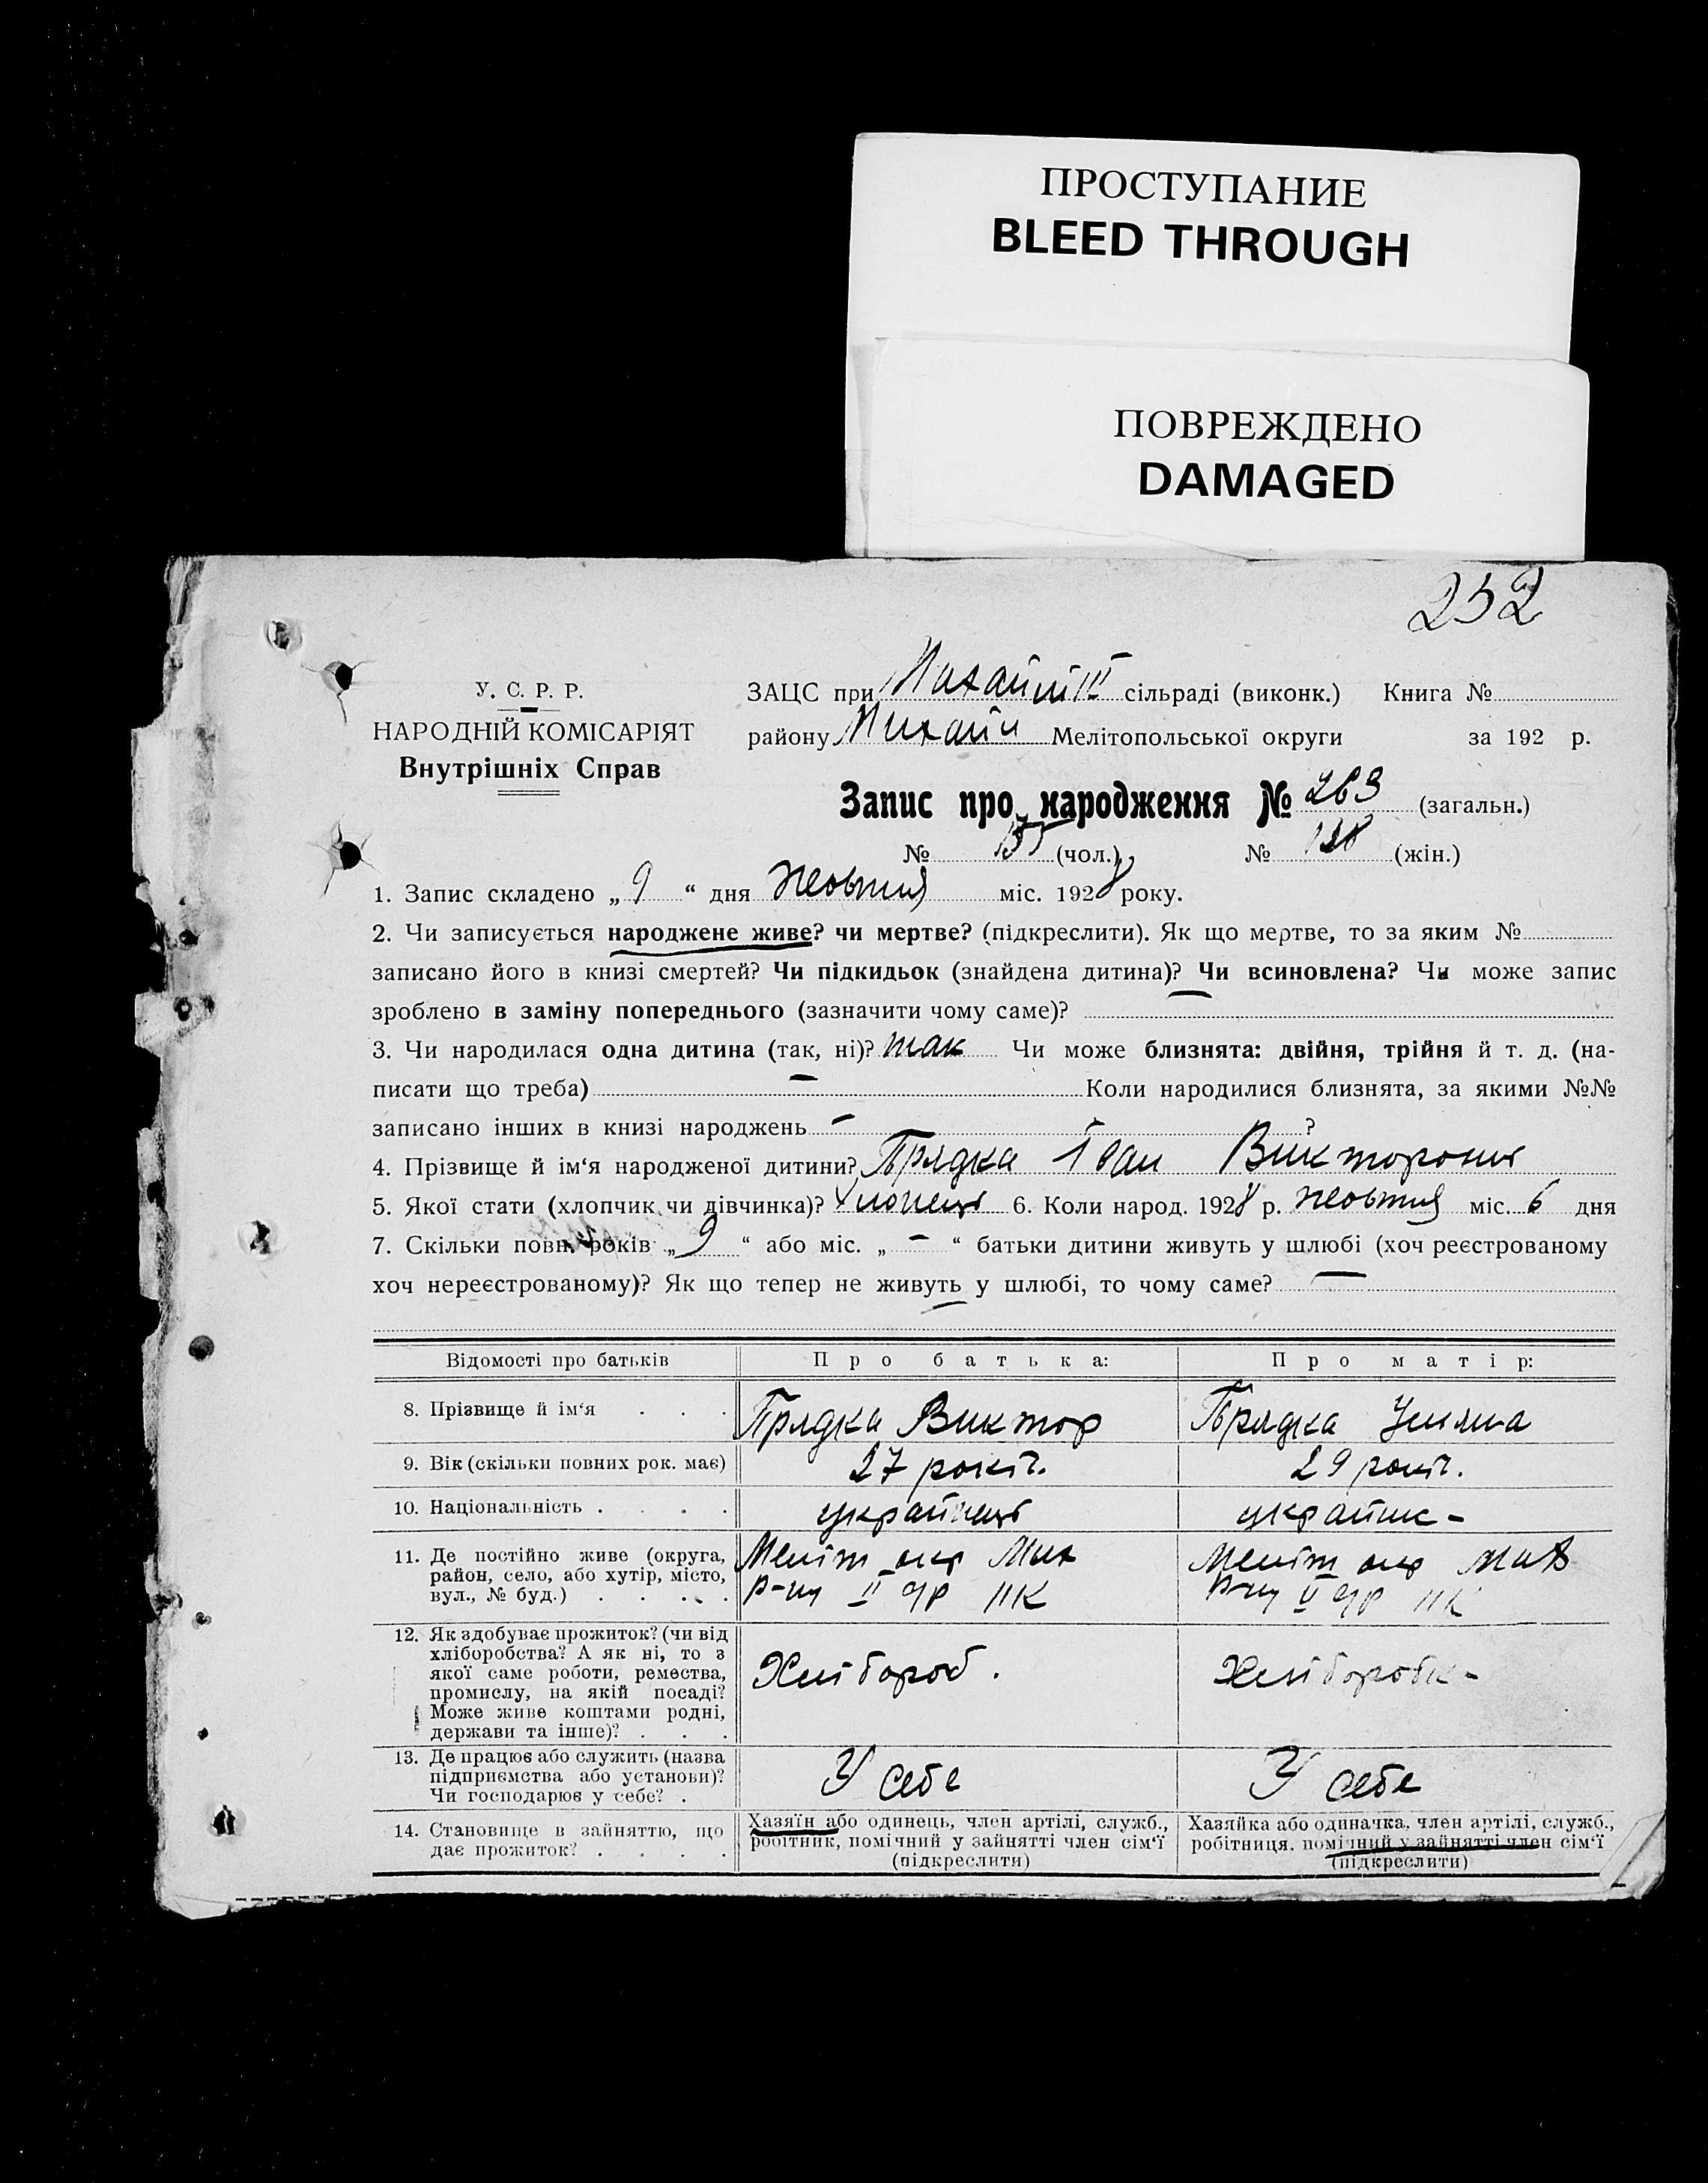 ПРОСТУПАНИЕ
BLEED THROUGH
ПОВРЕЖДЕНО
DAMAGED
252
У. С. Р. Р.
НАРОДНІЙ КОМІСАРІЯТ
Внутрішніх Справ
ЗАЦС при сільраді (виконк.) Книга №
району Мелітопольської округи за 192 р.
Запис про народження № 263 (загальн.)
№ (чол.) № (жін.)
1. Запис складено „ 9 “ дня жовтня міс. 1928 року.
2. Чи записується народжене живе? чи мертве? (підкреслити). Як що мертве, то за яким №
записано його в книзі смертей? Чи підкидьок (знайдена дитина)? Чи всиновлена? Чи може запис
зроблено в заміну попереднього (зазначити чому саме)?
3. Чи народилася одна дитина (так, ні)? так Чи може близнята: двійня, трійня й т. д. (на-
писати що треба) — Коли народилися близнята, за якими №№
записано інших в книзі народжень — ?
4. Прізвище й ім‘я народженої дитини? Прядка Іван
5. Якої стати (хлопчик чи дівчинка)? Хлопець 6. Коли народ. 1928 р. жовтня міс. 6 дня
7. Скільки повн. років „ 9 “ або міс. „ — “ батьки дитини живуть у шлюбі (хоч реєстрованому
хоч нереєстрованому)? Як що тепер не живуть у шлюбі, то чому саме? —
Відомості про батьків Про батька: Про матір:
8. Прізвище й ім‘я . . . Прядка Виктор Прядка Уляна
9. Вік (скільки повних рок. має) 27 років. 29 років.
10. Національність . . . . українець українк-
11. Де постійно живе (округа, Меліт окр Мих Меліт окр Мих
район, село, або хутір, місто, р-ну II р-ну II
вул., № буд.) . . . . .
12. Як здобуває прожиток? (чи від
хліборобства? А як ні, то з
якої саме роботи, ремества, Хлібороб. Хліборобк-
промислу, на якій посаді?
Може живе коштами родні,
держави та інше)? . . .
13. Де працює або служить (назва
підприємства або установи)? У себе У себе
Чи господарює у себе? .
14. Становище в зайняттю, що Хазяїн або одинець, член артілі, служб., Хазяйка або одиначка, член артілі, служб.,
дає прожиток? . . . . робітник, помічний у зайнятті член сім‘ї робітниця, помічний у зайнятті член сім‘ї
(підкреслити) (підкреслити)